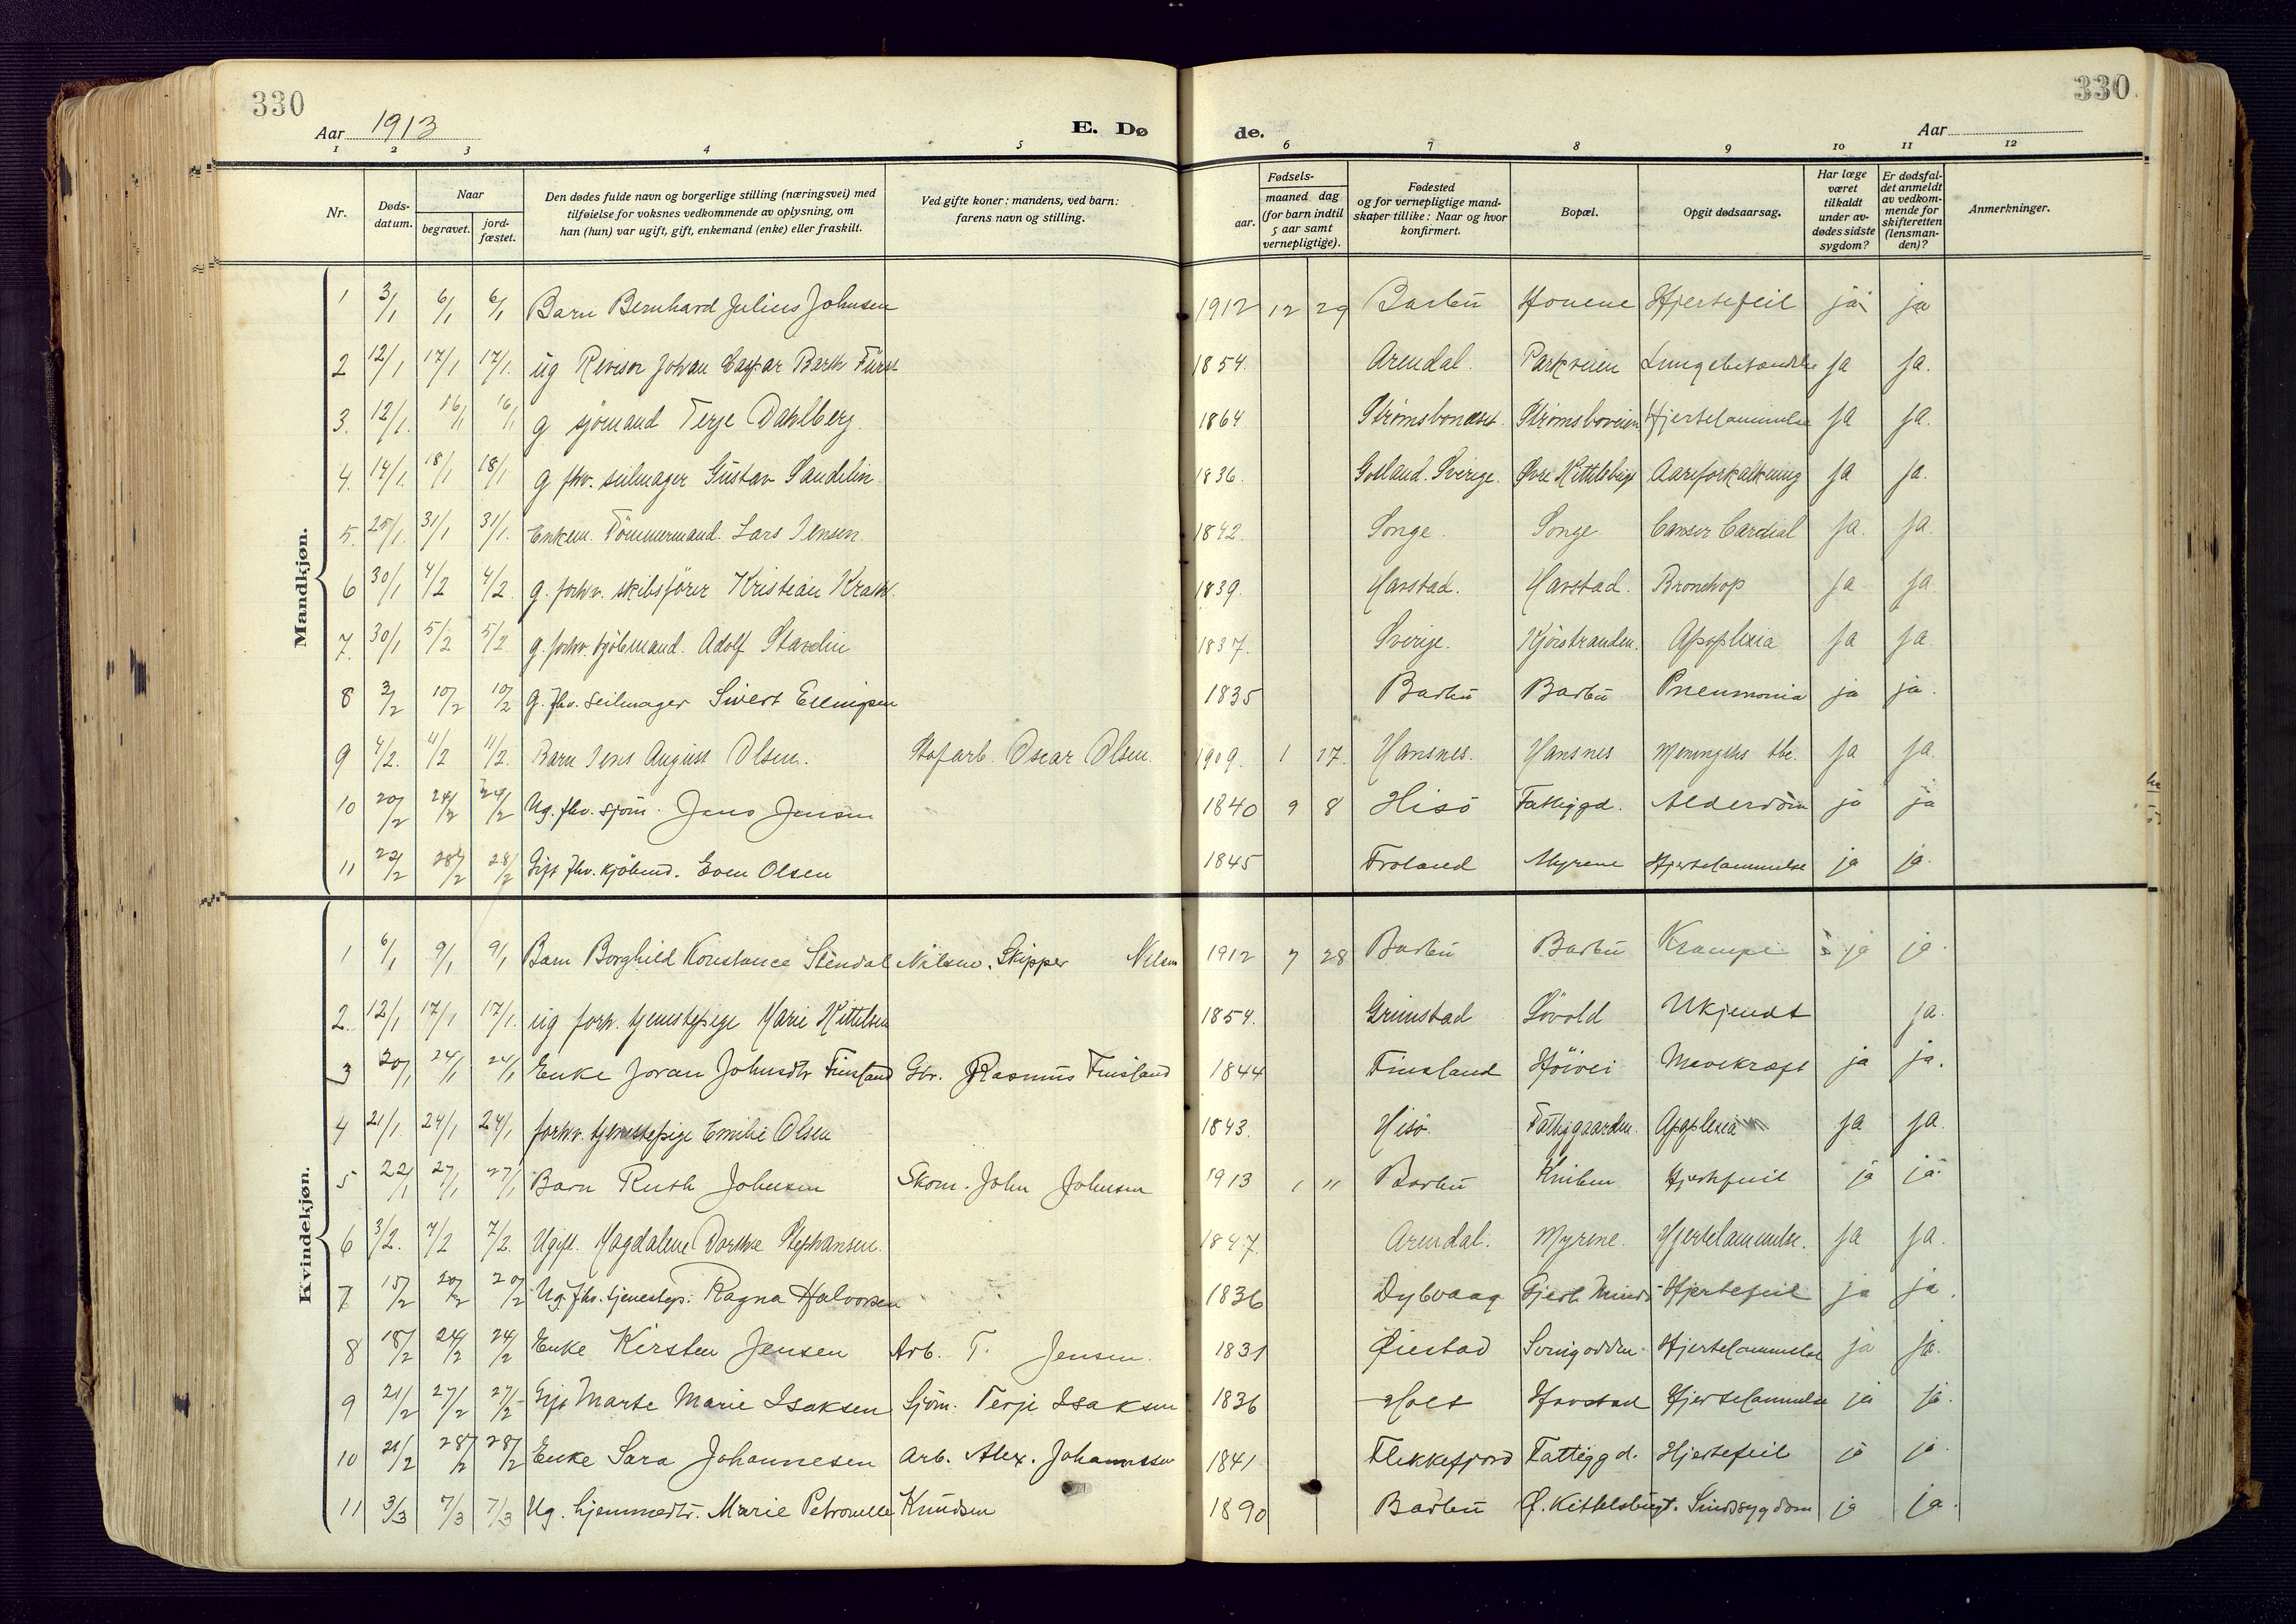 330
330
Aar 1913
E. Dø
de.
Aar
1 2 3 4 5 6 7 8 9 10 11 12
Nr.
Døds-
datum.
Naar
begravet.
jord-
fæstet.
Den dødes fulde navn og borgerlige stilling (næringsvei) med
tilføielse for voksnes vedkommende av oplysning, om
han (hun) var ugift, gift, enkemand (enke) eller fraskilt.
Ved gifte koner: mandens, ved barn:
farens navn og stilling.
Fødsels-
aar.
maaned dag
(for barn indtil
5 aar samt
vernepligtige).
Fødested
og for vernepligtige mand-
skaper tillike: Naar og hvor
konfirmert.
Bopæl.
Opgit dødsaarsag.
Har læge
været
tilkaldt
under av-
dødes sidste
sygdom?
Er dødsfal-
det anmeldt
av vedkom-
mende for
skifteretten
(lensman-
den)?
Anmerkninger.
Mandkjøn.
1 3/1 6/1 6/1 Barn Bernhard Julius Johnsen 1912 12 29 Barbu Hjertefeil ja ja
2 12/1 17/1 17/1. ug Revisor Johan Caspar Barth Fürst 1854. Arendal. Parkveien ja ja.
3. 12/1. 16/1 16/1 g sjömand Terje Dahlberg. 1864 Strømsboveien Hjertelammelse ja ja.
4. 14/1. 18/1 18/1 g fhv. seilmager Gustav Sandelin 1836. Gotland. Sverige. Øvre Kittelsbugt Aareforkalkning ja ja.
5. 25/1. 31/1 31/1. Enkem. Tömmermand. Lars Jensen. 1842. Songe. Songe Cancer Cardial ja. ja.
6 30/1 4/2 4/2. g. forhv. skibsfører Kristian 1839. Havstad. Havstad. ja ja.
7. 30/1 5/2 5/2. g. forhv. Adolf 1837. Sverige. Kjörstranden. Apoplexia ja ja.
8 3/2 10/2 10/2 G. fhv. Seilmager Sivert Ellingsen 1835 Barbu Barbu Pneumonia ja ja.
9 4/2. 11/2 11/2. Barn Jens August Olsen. Oscar Olsen. 1909. 1 17. Hansnes. Hansnes Meningitis tbc. ja ja.
10 20/2 24/2 24/2 Ug. fhv. sjöm. Jens Jensen 1840 9 8 Hisö Fattiggd. Alderdom ja ja
11 22/2 28/2 28/2 Gift fhv. kjöbmd. Even Olsen 1845 Froland Myrene Hjertelammelse ja ja.
Kvindekjøn.
1 6/1 9/1 9/1 Barn Borghild Konstance Stendal Nilsen. Skipper Nilsen 1912 7 28 Barbu Barbu Krampe ja ja.
2. 12/1 17/1 17/1. ug forh. tjenestepige Marie Kittelsen 1854. Grimstad Lövold Ukjendt ja.
3 20/1 24/1 24/1 Enke Joran Johnsdtr Finsland Gbr. Rasmus Finsland 1844 Finsland Höivei Mavekræft ja ja.
4 21/1. 24/1 24/1 forhv. tjenestepige Emilie Olsen 1843. Hisö. Fattiggaarden. Apoplexia ja ja.
5 22/1 27/1 27/1 Barn Ruth Johnsen Skom. John Johnsen 1913 1 11 Barbu Kniben Hjertefeil ja ja.
6 3/2. 7/2 7/2. Ugift. Magdalene Dorthe Stephansen. 1847. Arendal. Myrene. Hjertelammelse. ja ja.
7 15/2 20/2 20/2 Ug. fhv. tjenestep. Ragna Halvorsen 1836 Dybvaag Hjertefeil ja ja.
8 18/2 24/2 24/2 Enke Kirsten Jensen Arb. T. Jensen. 1831 Øiestad Hjertelammelse ja ja.
9 21/2 27/2 27/2 Gift Marte Marie Isaksen Sjöm. Terje Isaksen 1836 Holt Havstad Hjertelammelse ja ja.
10 21/2 28/2 28/2 Enke Sara Johannesen Arb. Alex. Johannesen 1841 Flekkefjord Fattiggd. Hjertefeil ja ja.
11 3/3 7/3 7/3 Ug. hjemmedtr. Marie Petronelle Knudsen 1890 Barbu Ø. Kittelsbugt. Sindssygdom ja ja.